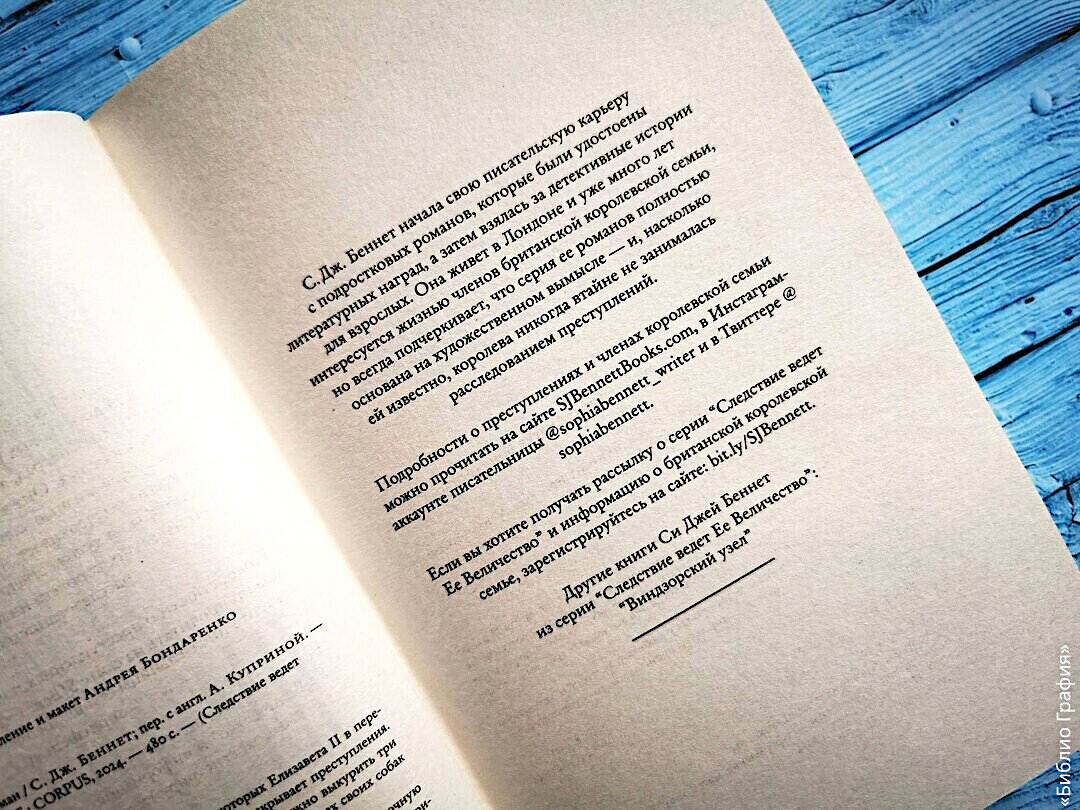 ление и макет Андрея Бондаренко
ман / С. Дж. Беннет; пер. с англ. А. Куприной. —
: CORPUS, 2024. — 480 с. — (Следствие ведет
которых Елизавета II в пере-
крывает преступления.
но выкурить три
своих собак
очную
С. Дж. Беннет начала свою писательскую карьеру
с подростковых романов, которые были удостоены
литературных наград, а затем взялась за детективные истории
для взрослых. Она живет в Лондоне и уже много лет
интересуется жизнью членов британской королевской семьи,
но всегда подчеркивает, что серия ее романов полностью
основана на художественном вымысле — и, насколько
ей известно, королева никогда втайне не занималась
расследованием преступлений.
Подробности о преступлениях и членах королевской семьи
можно прочитать на сайте SJBennettBooks.com, в Инстаграм-
аккаунте писательницы @sophiabennett_writer и в Твиттере @
sophiabennett.
Если вы хотите получать рассылку о серии “Следствие ведет
Ее Величество” и информацию о британской королевской
семье, зарегистрируйтесь на сайте: bit.ly/SJBennett.
Другие книги Си Джей Беннет
из серии “Следствие ведет Ее Величество”:
“Виндзорский узел”
«Библио Графия»